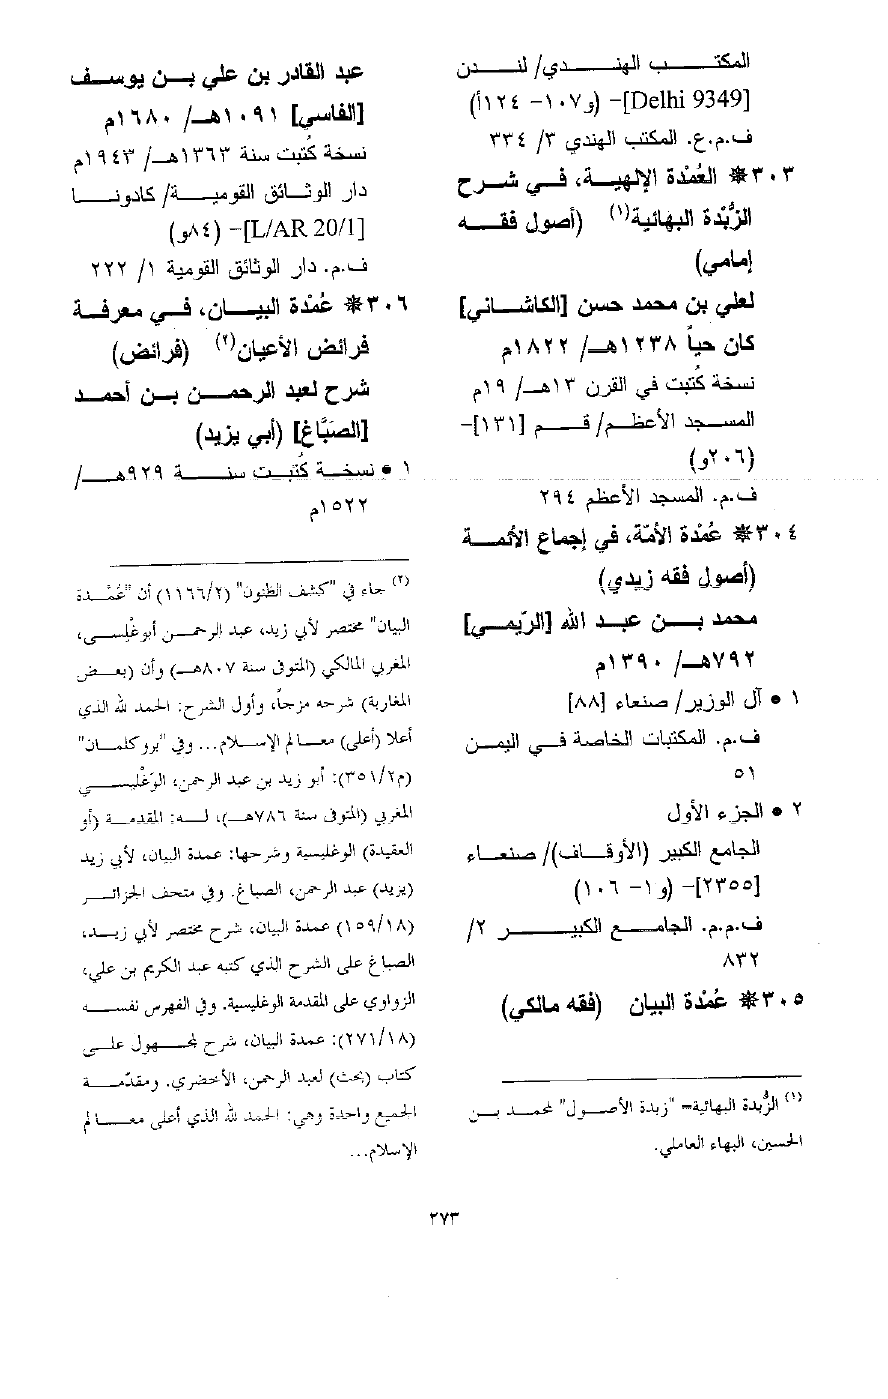 المكتب الهندي/ لندن
[Delhi 9349]- (و١٠٧- ١٢٤أ)
ف.م.ع. المكتب الهندي ٣/ ٣٣٤
٣٠٣* العُمْدة الإلهية، في شرح
الزُّبْدة البهائية(١) (أصول فقه
إمامي)
لعلي بن محمد حسن [الكاشاني]
كان حياً ١٢٣٨هـ/ ١٨٢٢م
نسخة كُتبت في القرن ١٣هـ/ ١٩م
المسجد الأعظم/ قم [١٣١]-
(٢٠٦و)
ف.م. المسجد الأعظم ٢٩٤
٣٠٤* عُمْدة الأمّة، في إجماع الأئمة
(أصول فقه زيدي)
محمد بن عبد الله [الرّيمي]
٧٩٢هـ/ ١٣٩٠م
١ • آل الوزير/ صنعاء [٨٨]
ف.م. المكتبات الخاصة في اليمن
٥١
٢ • الجزء الأول
الجامع الكبير (الأوقاف)/ صنعاء
[٢٣٥٥]- (و١- ١٠٦)
ف.م.م. الجامع الكبير ٢/
٨٣٢
٣٠٥* عُمْدة البيان (فقه مالكي)
(١) الزُّبدة البهائية= "زبدة الأصول" لمحمد بن
الحسين، البهاء العاملي.
عبد القادر بن علي بن يوسف
[الفاسي] ١٠٩١هـ/ ١٦٨٠م
نسخة كُتبت سنة ١٣٦٣هـ/ ١٩٤٣م
دار الوثائق القومية/ كادونا
[L/AR 20/1]- (٨٤و)
ف.م. دار الوثائق القومية ١/ ٢٢٢
٣٠٦* عُمْدة البيان، في معرفة
فرائض الأعيان(٢) (فرائض)
شرح لعبد الرحمن بن أحمد
[الصبَّاغ] (أبي يزيد)
١ • نسخة كُتبت سنة ٩٢٩هـ/
١٥٢٢م
(٢) جاء في "كشف الظنون" (١١٦٦/٢) أن "عُمْدة
البيان" مختصر لأبي زيد، عبد الرحمن أبوغْلِسى،
المغربي المالكي (المتوفى سنة ٨٠٧هـ) وأن (بعض
المغاربة) شرحه مزجاً، وأول الشرح: الحمد لله الذي
أعلا (أعلى) معالم الإسلام... وفي "بروكلمان"
(م٣٥١/٢): أبو زيد بن عبد الرحمن، الوَغْليسي
المغربي (المتوفى سنة ٧٨٦هـ)، له: المقدمة (أو
العقيدة) الوغليسية وشرحها: عمدة البيان، لأبي زيد
(يزيد) عبد الرحمن، الصباغ. وفي متحف الجزائر
(١٥٩/١٨) عمدة البيان، شرح مختصر لأبي زيد،
الصباغ على الشرح الذي كتبه عبد الكريم بن علي،
الزواوي على المقدمة الوغليسية. وفي الفهرس نفسه
(٢٧١/١٨): عمدة البيان، شرح لمجهول على
كتاب (بحث) لعبد الرحمن، الأخضري. ومقدّمة
الجميع واحدة وهي: الحمد لله الذي أعلى معالم
الإسلام...
٢٧٣